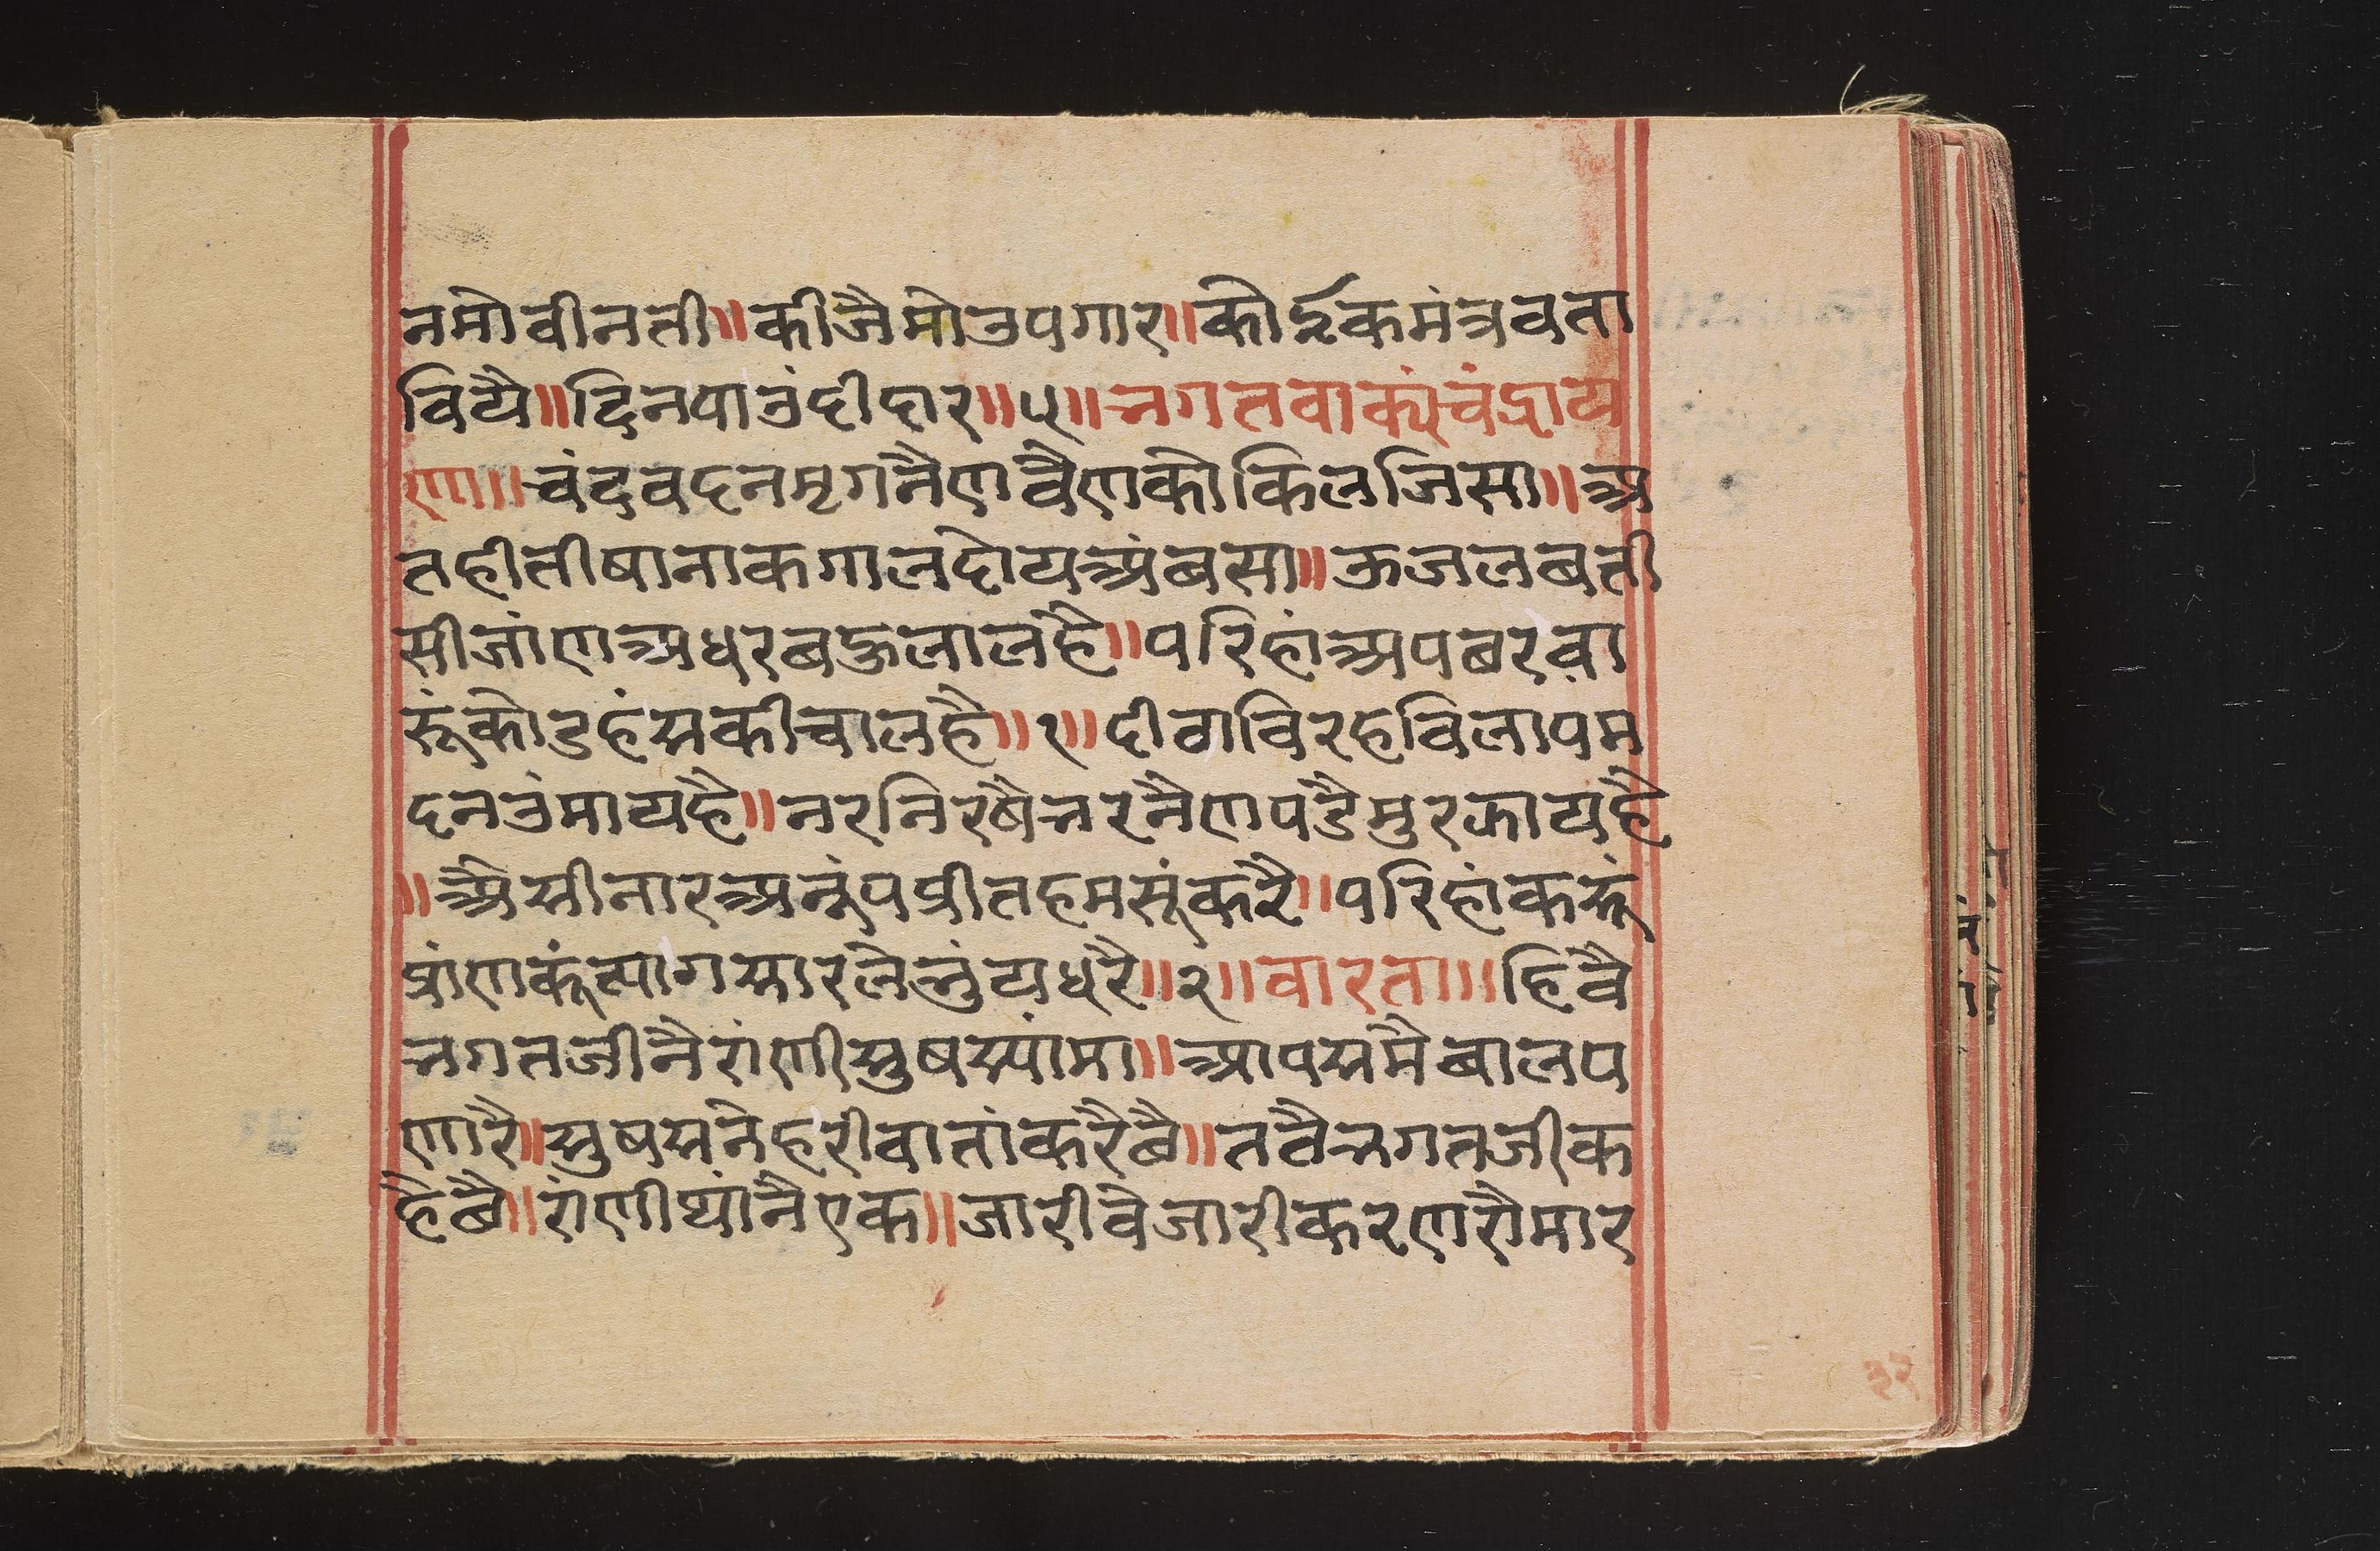 नमोवीनती॥कीजैमोउपगार॥कोईकमंत्रवता
वियै॥दिनपाउंदीदार॥५॥भगतवाक्यंचंद्राय
ण॥चंदवदनमृगनैणवैणकोकिलजिसा॥अ
तहीतीषानाकगालदोयअंबसा॥ऊजलबती
सीजांणअधरबऊलालहै॥परिहांअपबरवा
रूंकोडहंसकीचालहै॥१॥दीठाविरहविलापम
दनउंमायहै॥नरनिरषैभरनैणपडैमुरझायहै
॥अैसीनारअनूंपप्रीतहमसूंकरै॥परिहांकसूं
प्रांणकूंत्यागसारलेभुंयधरै॥२॥वारता॥हिवै
भगतजीनैरांणीसुषस्यांमा॥आपसमैबालप
णारै॥सुषसनेहरीवातांकरैबै॥तवैभगतजीक
हैबै॥रांणीथांनैएक॥जारीवेजारीकरणरौमार
३२